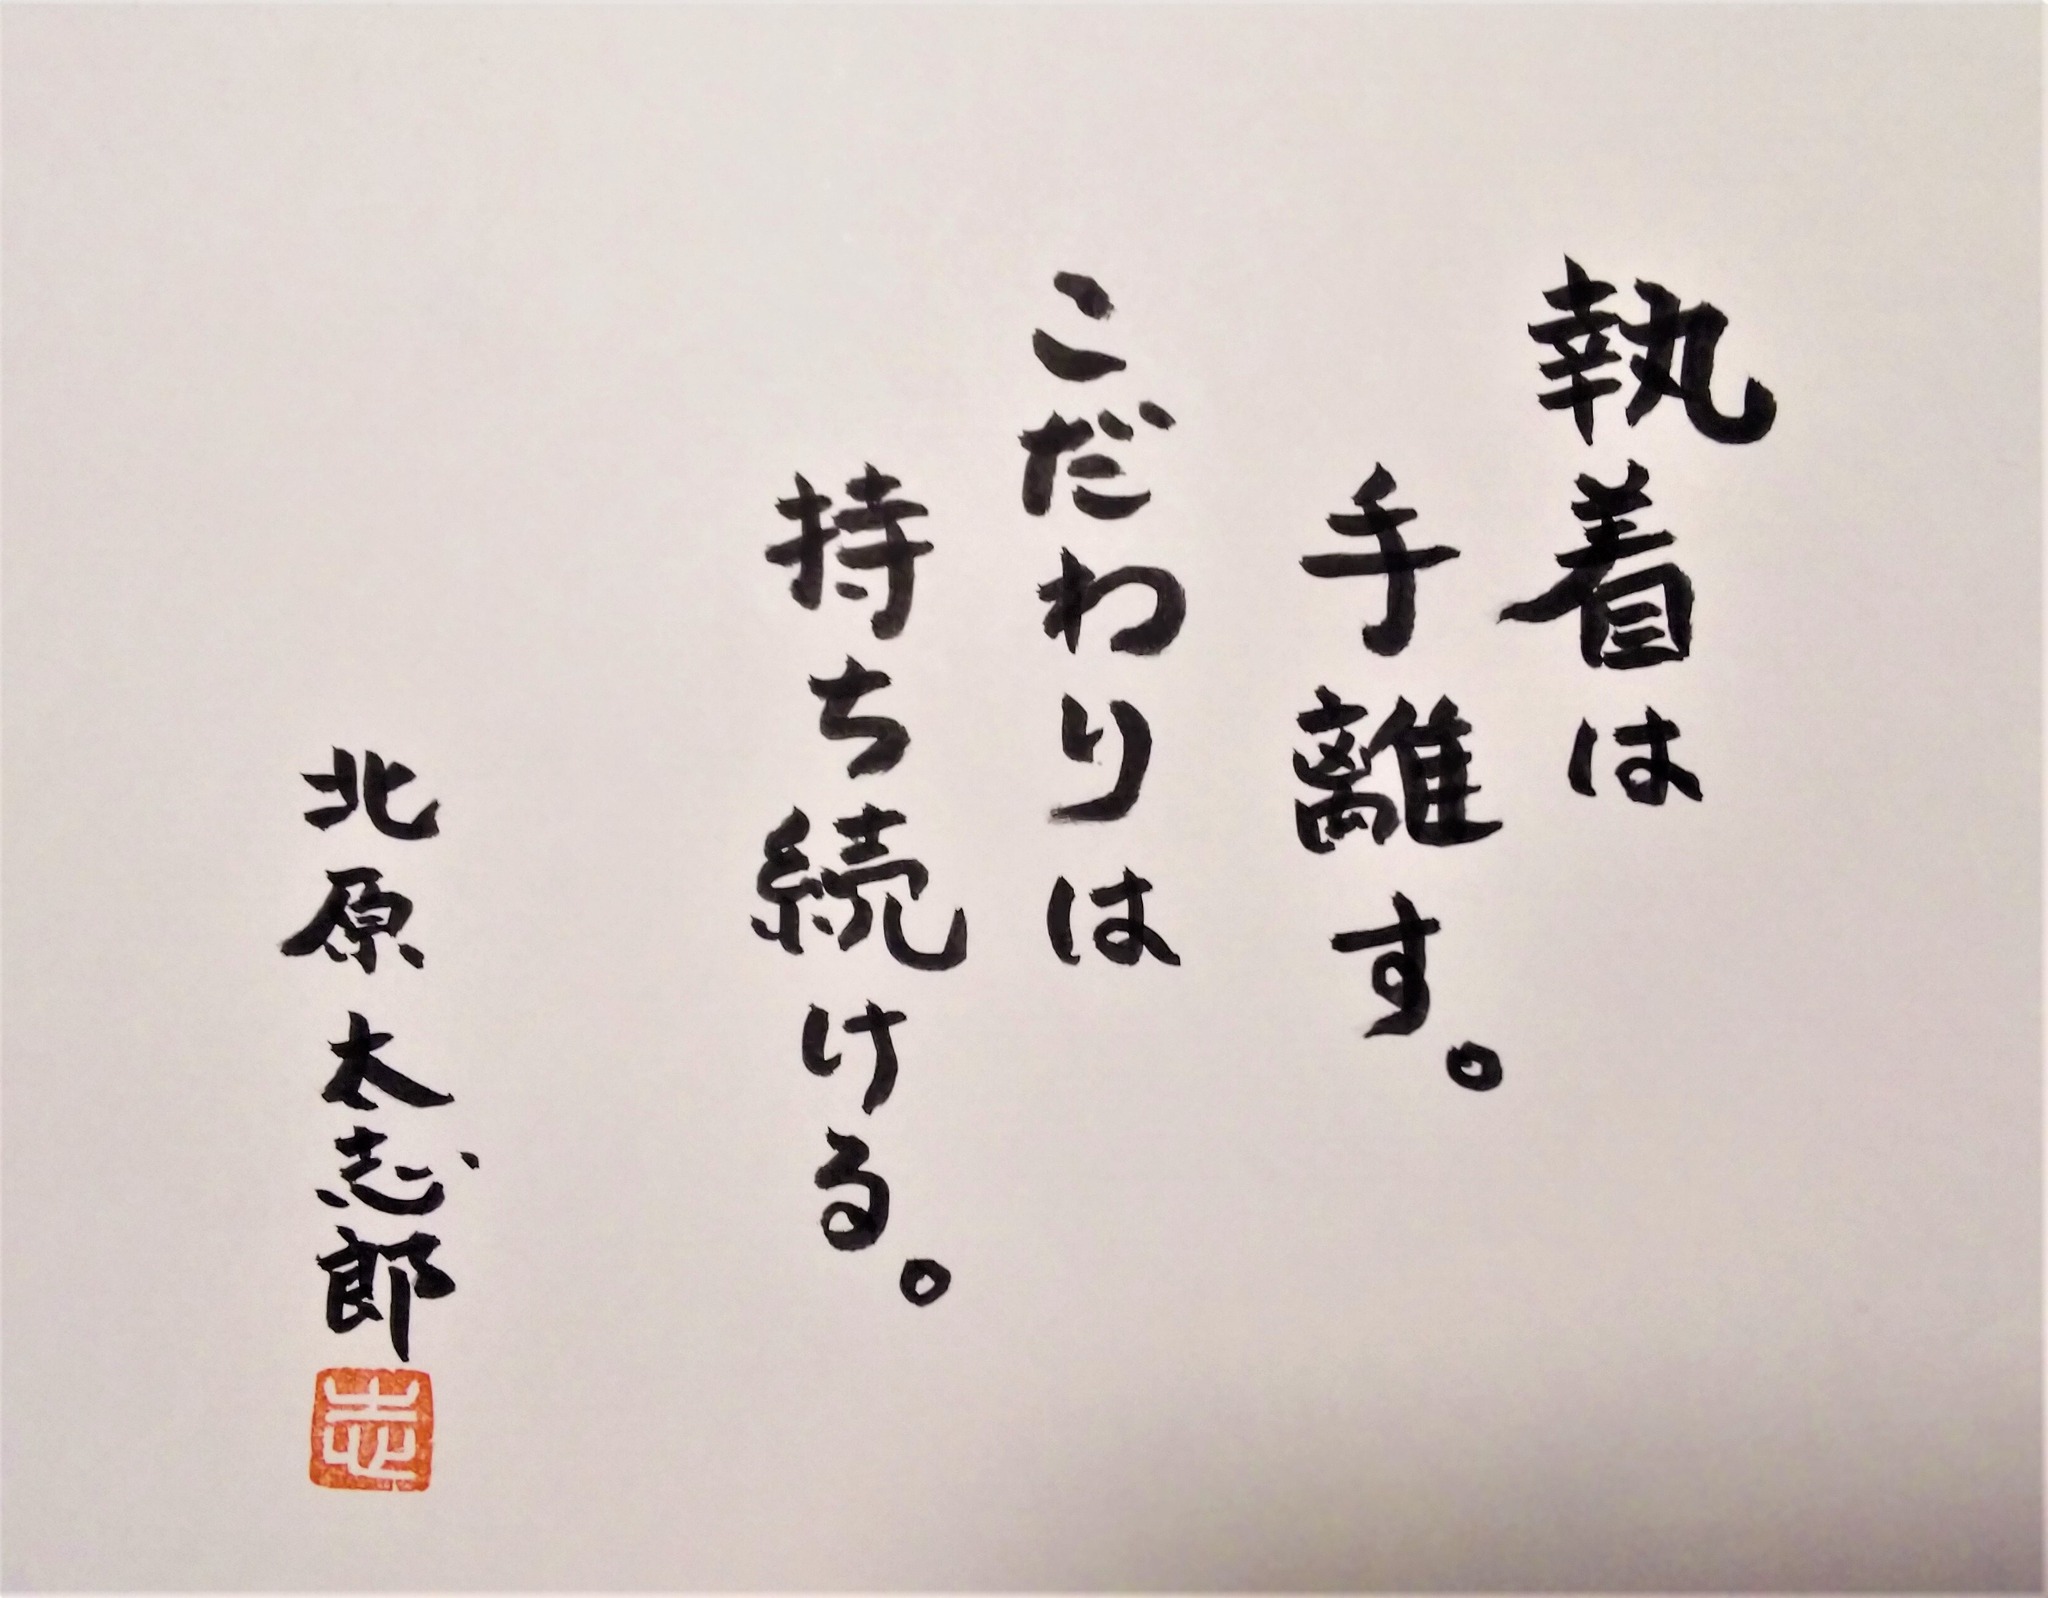 執着は
手離す。
こだわりは
持ち続ける。
北原太志郎
志